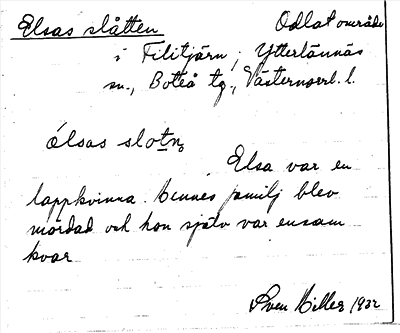 Elsas slåtten Odlat område
i Filitjärn, Ytterlännäs
sn., Boteå tg., Västernorrl. l.
ólsas slotn,
Elsa var en
lappkvinna. Hennes familj blev
mördad och hon själv var ensam
kvar
Sven Hiller 1932